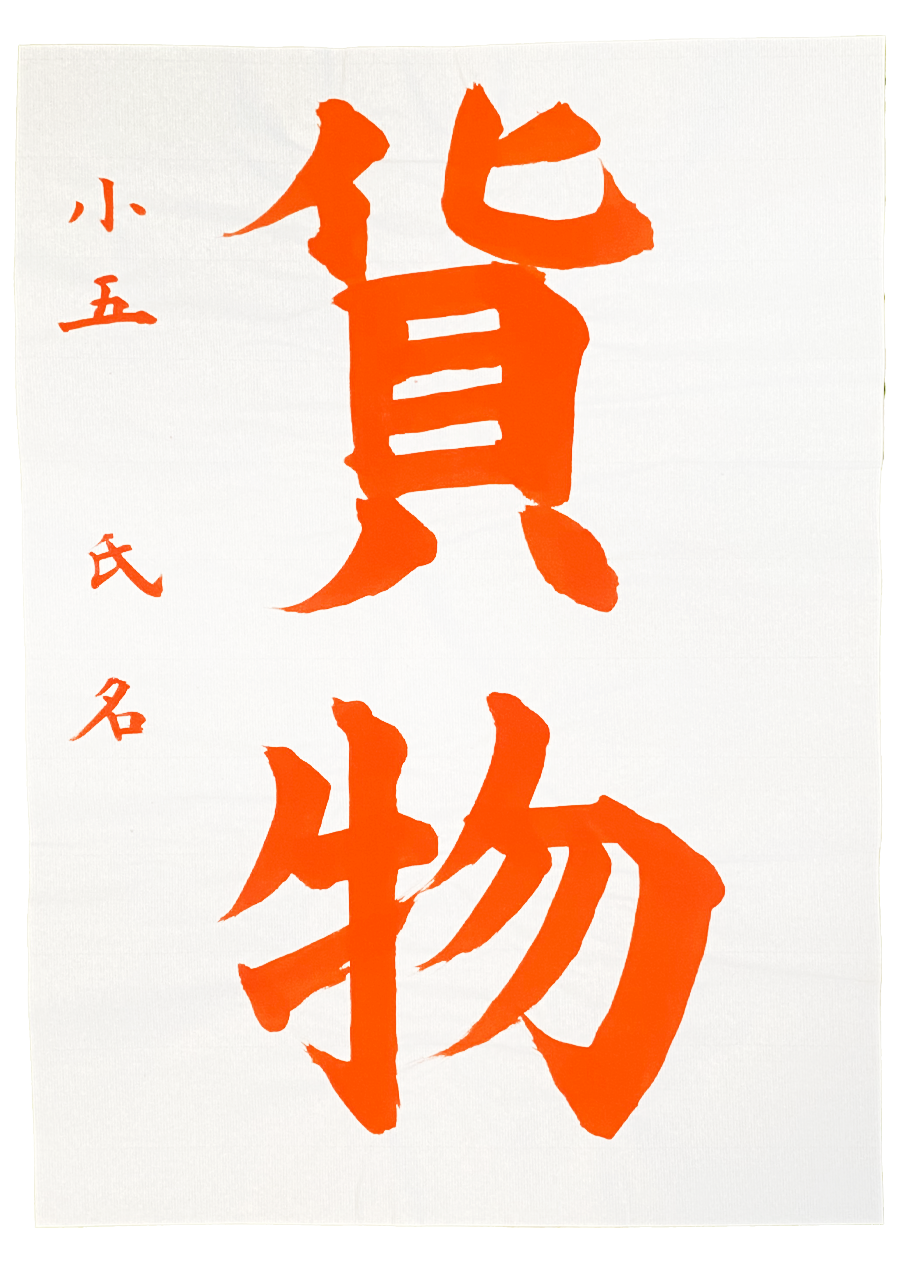 貨物
小五 氏名